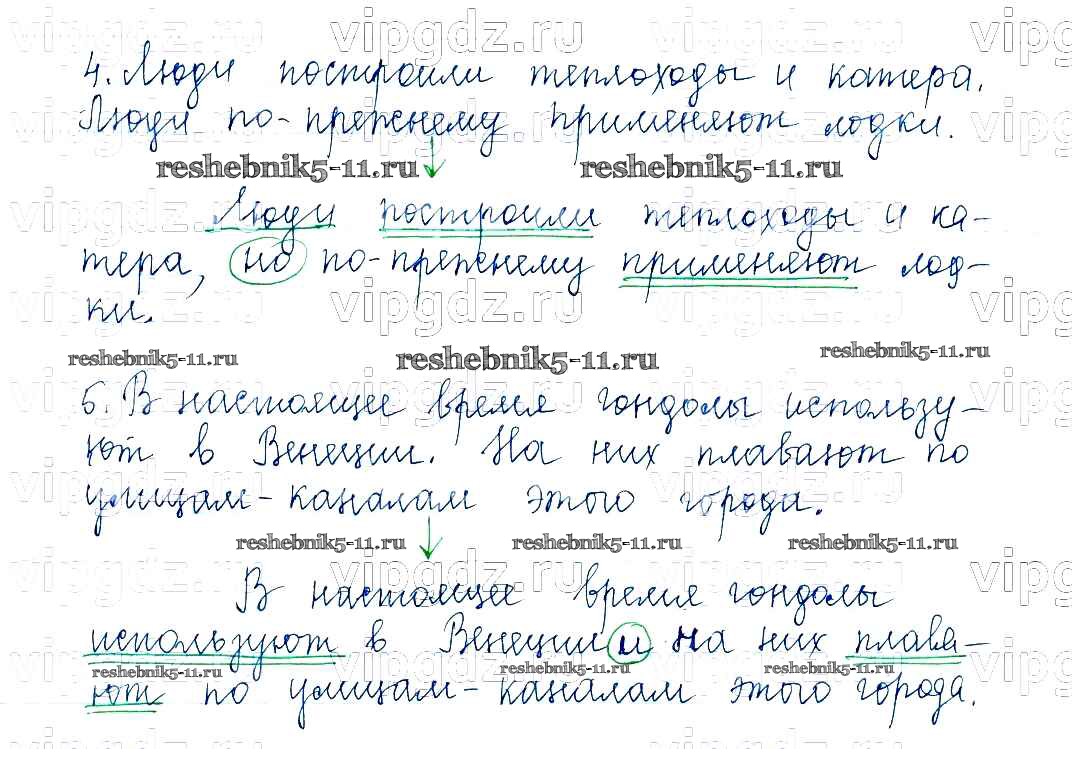 4. Люди построили теплоходы и катера.
Люди по-прежнему применяют лодки.
reshebnik5-11.ru reshebnik5-11.ru
Люди построили теплоходы и ка-
тера, но по-прежнему применяют лод-
ки.
reshebnik5-11.ru reshebnik5-11.ru reshebnik5-11.ru
5. В настоящее время гондолы использу-
ют в Венеции. На них плавают по
улицам-каналам этого города.
reshebnik5-11.ru reshebnik5-11.ru reshebnik5-11.ru
В настоящее время гондолы
используют в Венеции и на них плава-
reshebnik5-11.ru reshebnik5-11.ru reshebnik5-11.ru
ют по улицам-каналам этого города.